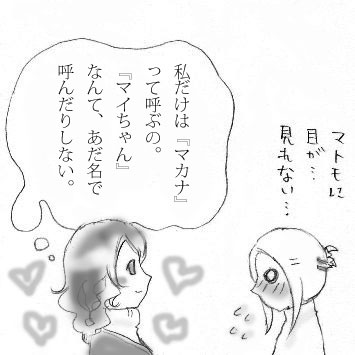 私だけは『マカナ』
って呼ぶの。
『マイちゃん』
なんて、あだ名で
呼んだりしない。
マトモに
目が…
見れない…